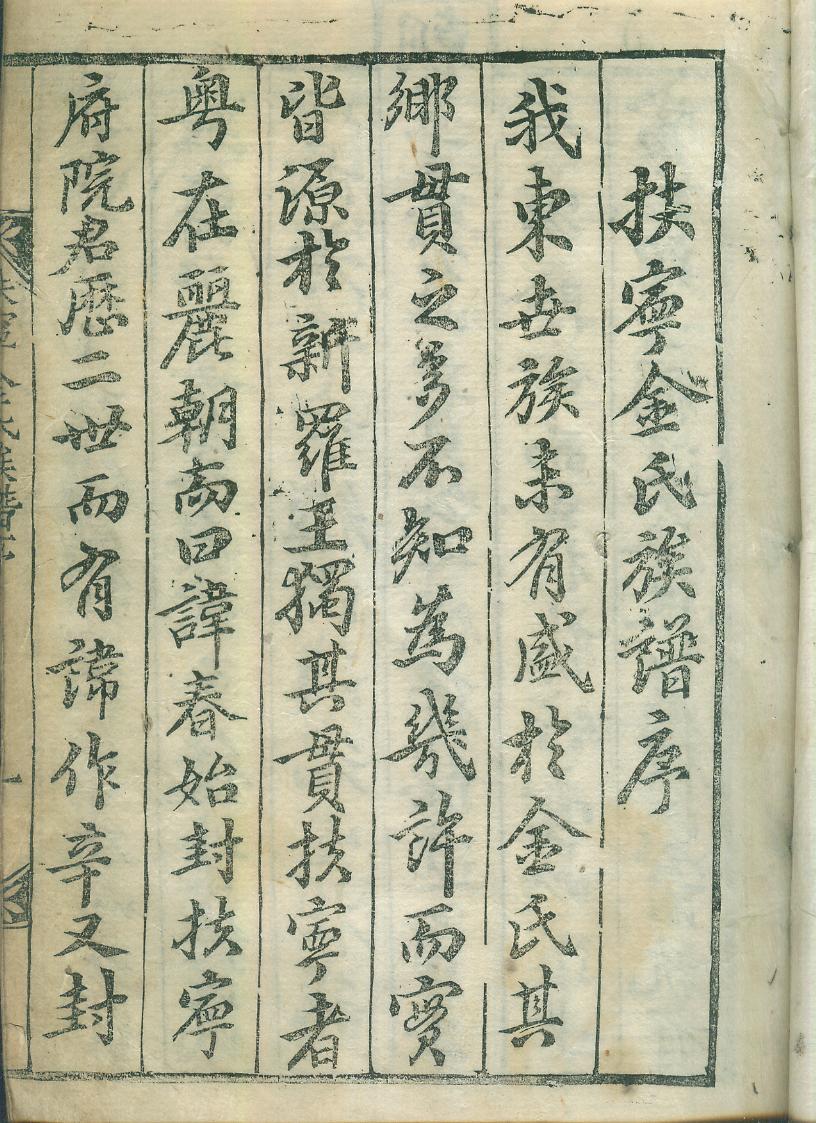 扶寧金氏族譜序
我東世族未有盛於金氏其
鄉貫之多不知為幾許而實
皆源於新羅王獨其貫扶寧者
粤在麗朝而曰諱春始封扶寧
府院君歷二世而有諱作辛又封